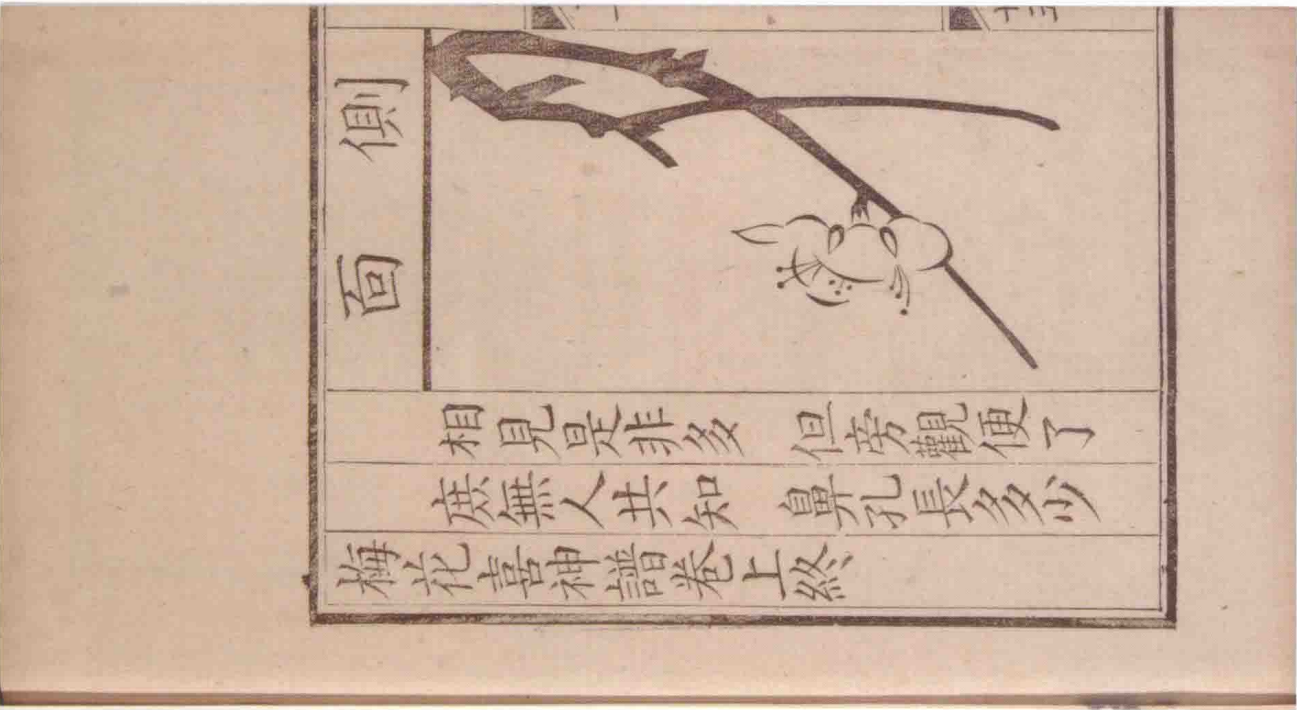 側靣
相見是非多 但旁觀便了
庶無人共知 鼻孔長多少
梅花喜神譜卷上終